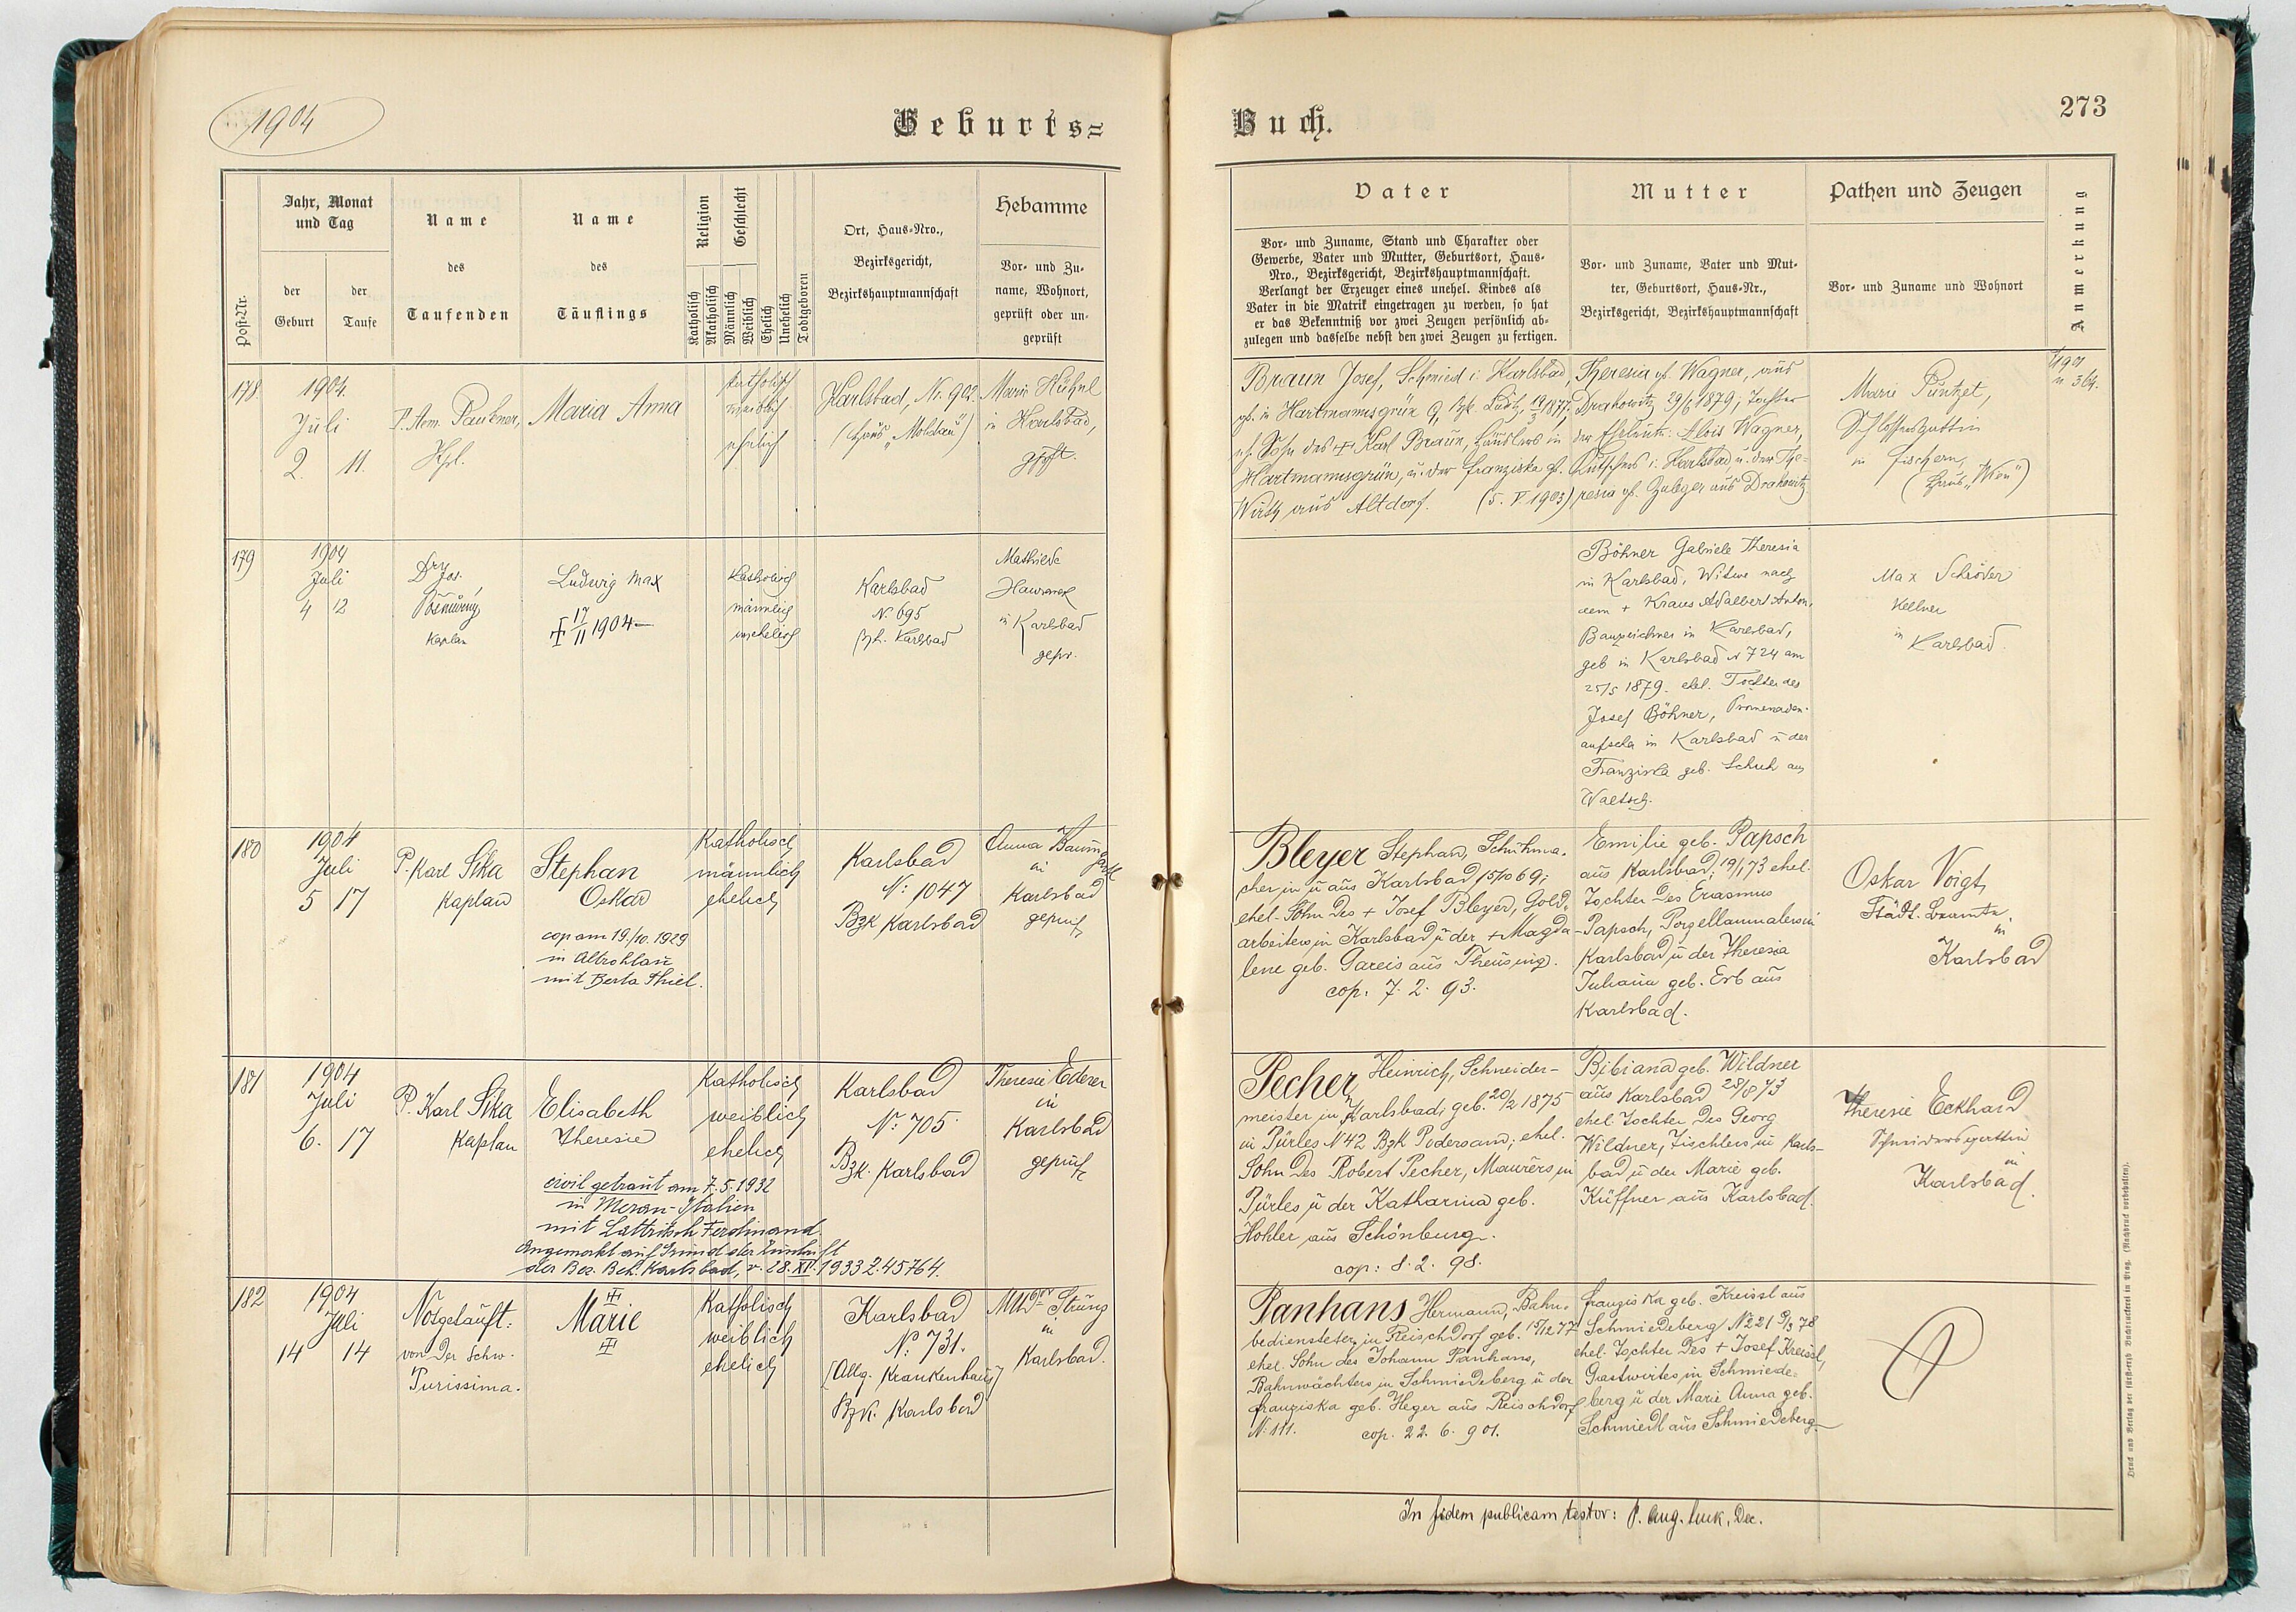 1904
Geburts=
Jahr, Monat
und Tag
der
Geburt
der
Taufe
Post-Nr.
Name
des
Taufenden
Name
des
Täuflings
Religion
Katholisch
Akatholisch
Geschlecht
Männlich
Weiblich
Ehelich
Unehelich
Todtgeboren
Ort, Haus-Nro.,
Bezirksgericht,
Bezirkshauptmannschaft
Hebamme
Vor- und Zu-
name, Wohnort,
geprüft oder un-
geprüft
178
1904.
Juli
2. 11.
Maria Anna
katholisch
weiblich
ehelich
Karlsbad, Nr. 902.
(Haus „Moldau")
Marie Kühnl
in Karlsbad,
gpft.
179
1904
Juli
4 12
Kaplan
Ludwig Max
17/11 1904
katholisch
männlich
unehelich
Karlsbad
N. 695
Bzk. Karlsbad
Mathilde
Hawranek
in Karlsbad
gepr.
180
1904
Juli
5 17
P. Karl Sika
Kaplan
Stephan
Oskar
cop am 19./10. 1929
in Altrohlau
mit Berta Thiel.
Katholisch
männlich
ehelich
Karlsbad
N: 1047
Bzk Karlsbad
Anna
in
Karlsbad
geprüft
181
1904
Juli
6. 17
P. Karl Sika
Kaplan
Elisabeth
Theresie
civil getraut am 7.5.1932
in Meran-Italien
mit Lattritsch Ferdinand.
Angemerkt auf Grund der Zuschrift
der Bez. Beh. Karlsbad, v. 28. XII. 1933 Z. 45764.
Katholisch
weiblich
ehelich
Karlsbad
N: 705.
Bzk. Karlsbad
Theresie Ederer
in
Karlsbad
geprüft
182
1904
Juli
14 14
Notgetauft:
von der Schw.
Purissima.
Marie
Katholisch
weiblich
ehelich
Karlsbad
N: 731.
[Allg. Krankenhaus]
Bzk. Karlsbad
in
Karlsbad.
Buch.
273
Vater
Vor- und Zuname, Stand und Charakter oder
Gewerbe, Vater und Mutter, Geburtsort, Haus-
Nro., Bezirksgericht, Bezirkshauptmannschaft.
Verlangt der Erzeuger eines unehel. Kindes als
Vater in die Matrik eingetragen zu werden, so hat
er das Bekenntniß vor zwei Zeugen persönlich ab-
zulegen und dasselbe nebst den zwei Zeugen zu fertigen.
Mutter
Vor- und Zuname, Vater und Mut-
ter, Geburtsort, Haus-Nr.,
Bezirksgericht, Bezirkshauptmannschaft
Pathen und Zeugen
Vor- und Zuname und Wohnort
Anmerkung
Braun Josef, Schmied i. Karlsbad,
gb. in Hartmannsgrün 9, Bzk. Luditz, 19/3 1877;
eh. Sohn des + Karl Braun, Häuslers in
Hartmannsgrün, u. der Franziska gb.
Wirth aus Altdorf. (5. V 1903)
Theresia gb. Wagner, aus
Drahowitz 29/6 1879; Tochter
der Eheleute: Alois Wagner,
Kutschers i. Karlsbad, u. der The-
resia gb. Zuleger aus Drahowitz.
Marie
Schlossersgattin
in Fischern,
(Haus „Wien")
Böhner Gabriele Theresia
in Karlsbad, Witwe nach
dem + Kraus Adalbert Anton,
Bauzeichner in Karlsbad,
geb in Karlsbad N 724 am
25/5 1879. ehel. Tochter des
Josef Böhner, Promenaden-
aufseher in Karlsbad u der
Franziska geb. Schuh aus
Max Schröder
Kellner
in
Karlsbad.
Bleyer Stephan, Schuhma-
cher in u aus Karlsbad 15/10 69;
ehel. Sohn des + Josef Bleyer, Gold-
arbeiters in Karlsbad u der + Magda-
lene geb. Gareis aus Theusing.
cop: 7. 2. 93.
Emilie geb. Papsch
aus Karlsbad; 19/1 73 ehel.
Tochter des Erasmus
Papsch, Porzellanmalers in
Karlsbad u der Theresia
Juliana geb. Erb aus
Karlsbad.
Oskar Voigt,
Städt. Beamte
in
Karlsbad
Pecher, Heinrich, Schneider-
meister in Karlsbad; geb. 20/2 1875
in Pürles N 42 Bzk Podersam; ehel.
Sohn des Robert Pecher, Maurers in
Pürles u der Katharina geb.
Hohler aus Schönburg.
cop: 8. 2. 98.
Bibiana geb. Wildner
aus Karlsbad 28/8 73
ehel. Tochter des Georg
Wildner, Tischlers in Karls-
bad u der Marie geb.
Küffner aus Karlsbad.
Theresie Eckhard
Schneidersgattin
in
Karlsbad.
Panhans Hermann, Bahn-
bediensteter in Reischdorf geb. 15/12 77
ehel. Sohn des Johann Panhans,
Bahnwächters in Schmiedeberg u der
Franziska geb. Heger aus Reischdorf
N: 111. cop. 22. 6. 901.
Franziska geb. Kreissl aus
Schmiedeberg N: 221 9/3 78
ehel. Tochter des + Josef Kreissl,
Gastwirtes in Schmiede-
berg u der Marie Anna geb.
Schmiedl aus Schmiedeberg.
In fidem publicam testor: P. Aug. Luk, Dec.
Druck und Verlag der fürst-erzb Buchdruckerei in Prag. (Nachdruck vorbehalten).